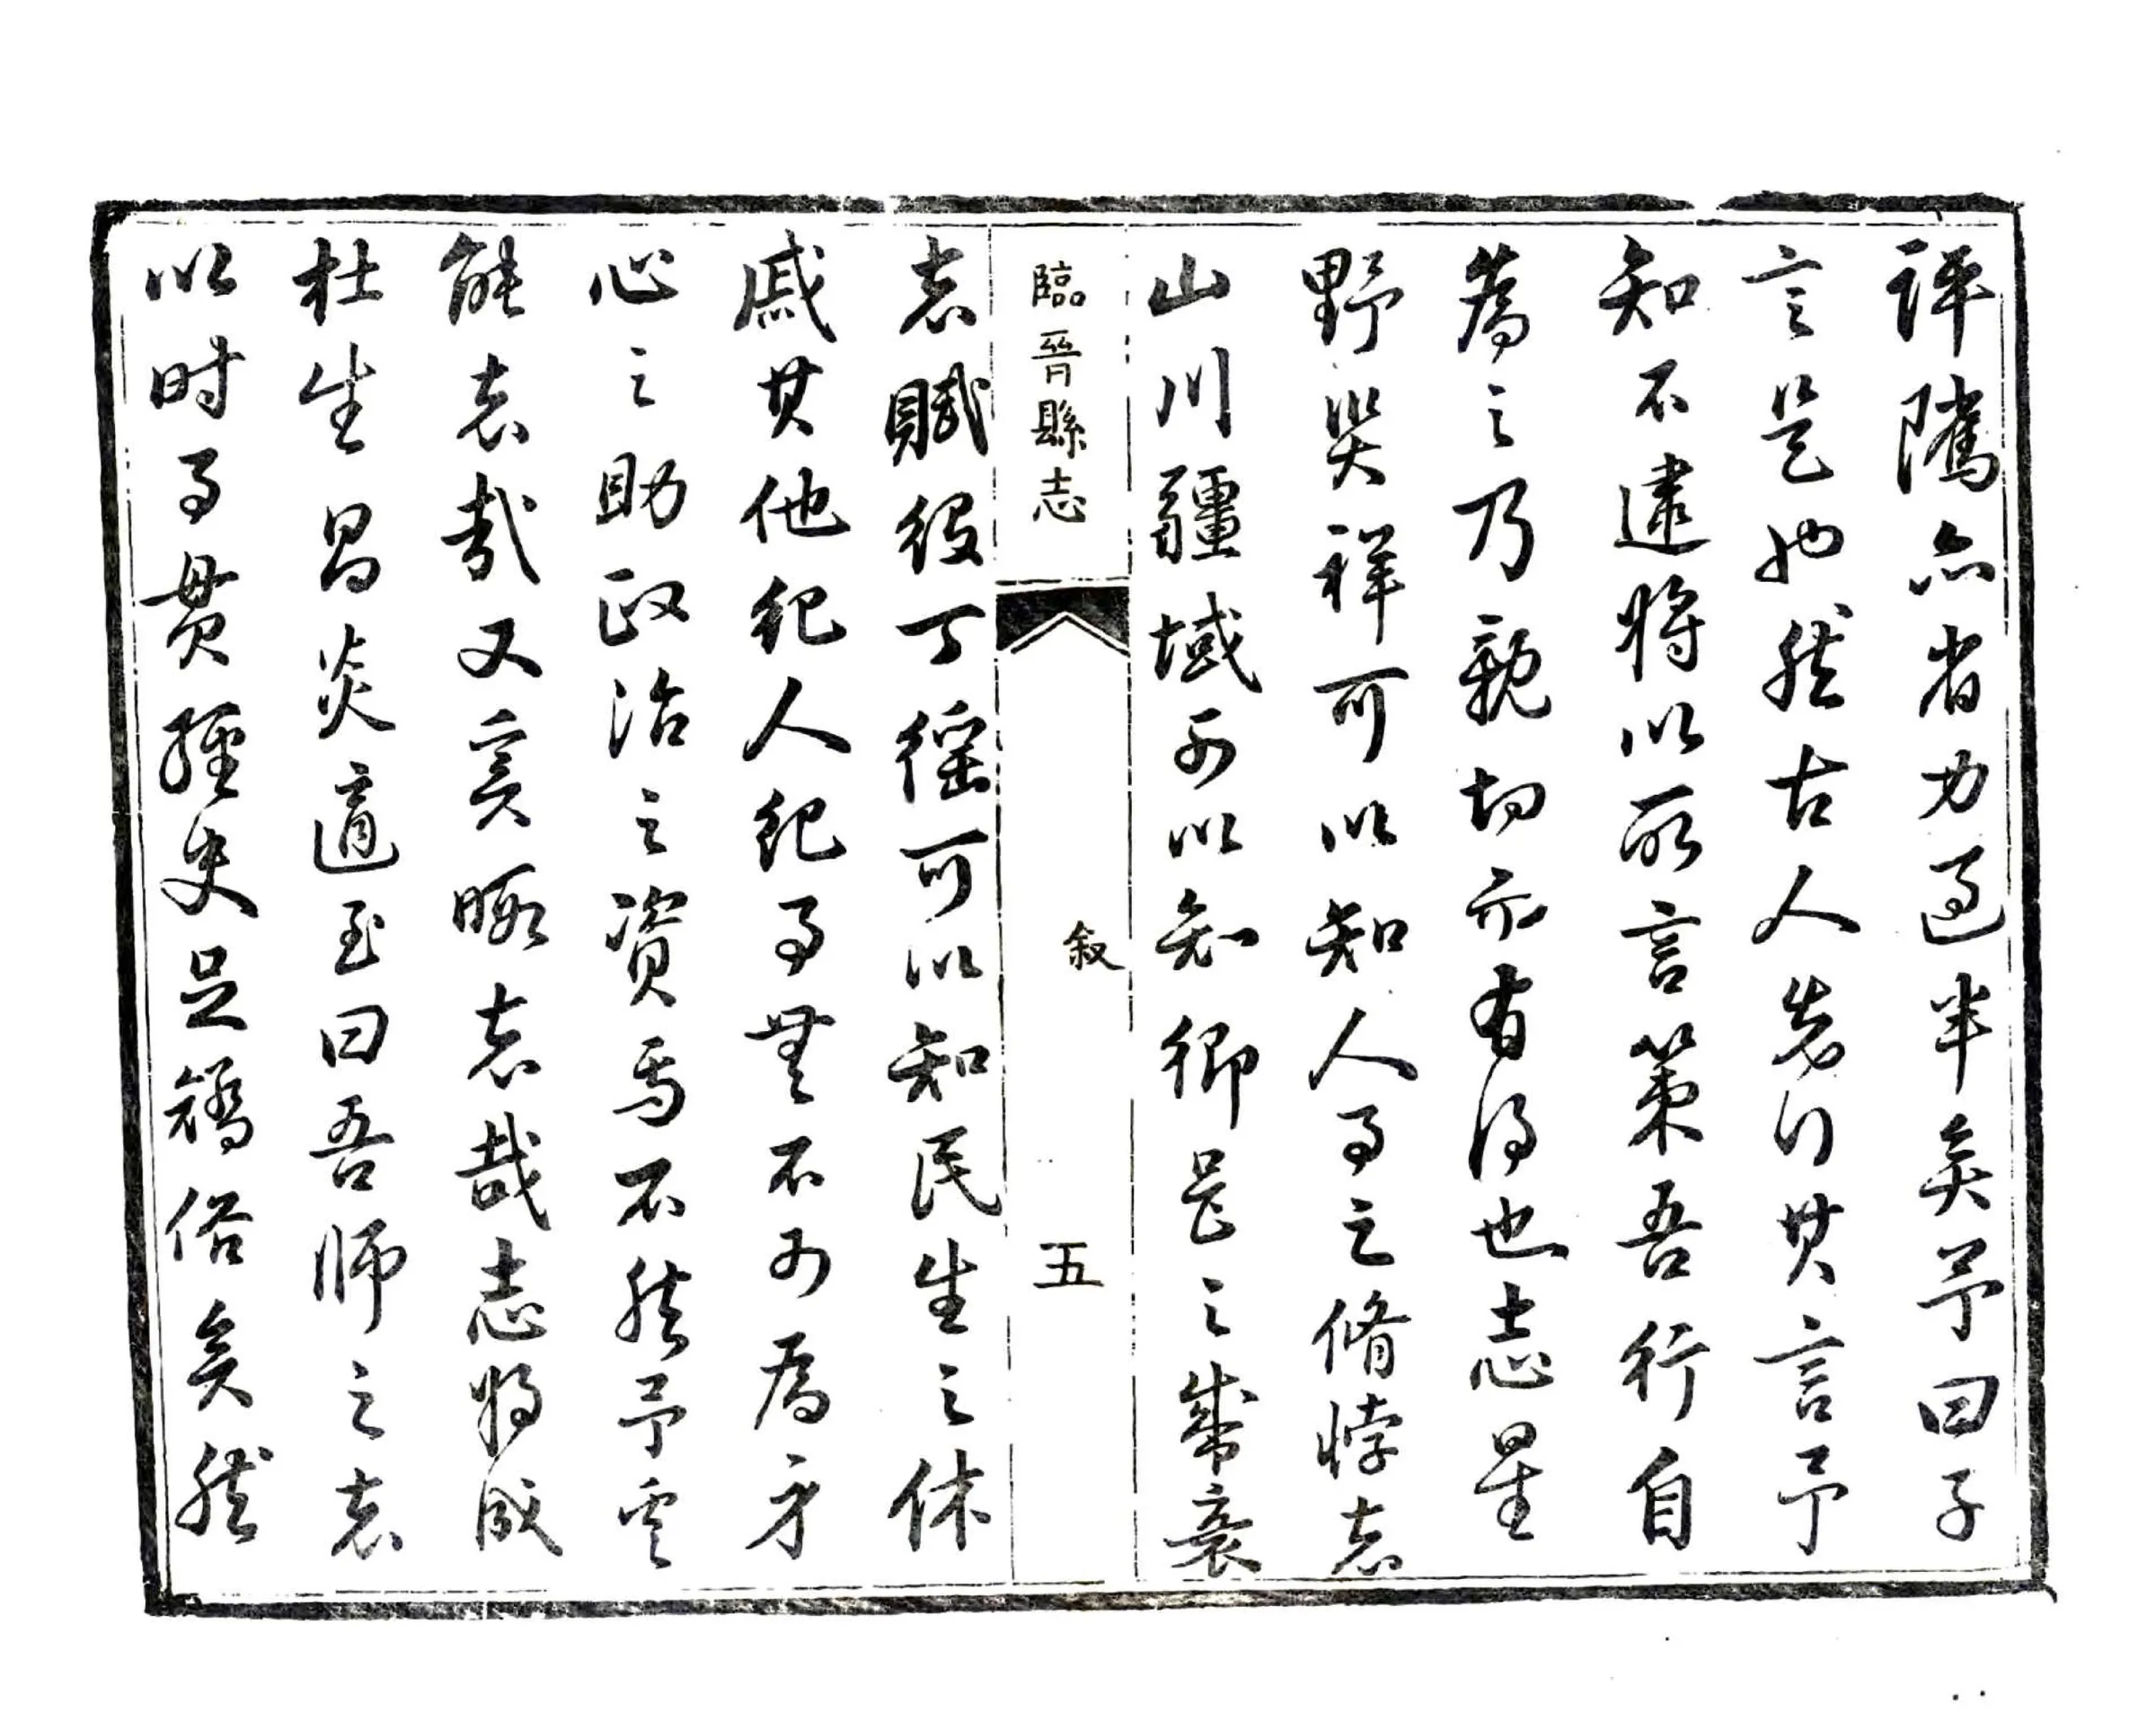 評隲亦省力過半矣予曰子
言是也然古人先行其言予
知不逮將以所言策吾行自
為之乃親切而有得也志星
野災祥可以知人事之脩悖志
山川疆域可以知鄉邑之盛衰
臨晉縣志
叙
五
志賦役丁徭可以知民生之休
戚其他紀人紀事無不可為身
心之助政治之資焉不然予安
能志哉又奚暇志哉志將成
杜生昌炎適至曰吾師之志
以時事貫經史足矯俗矣然